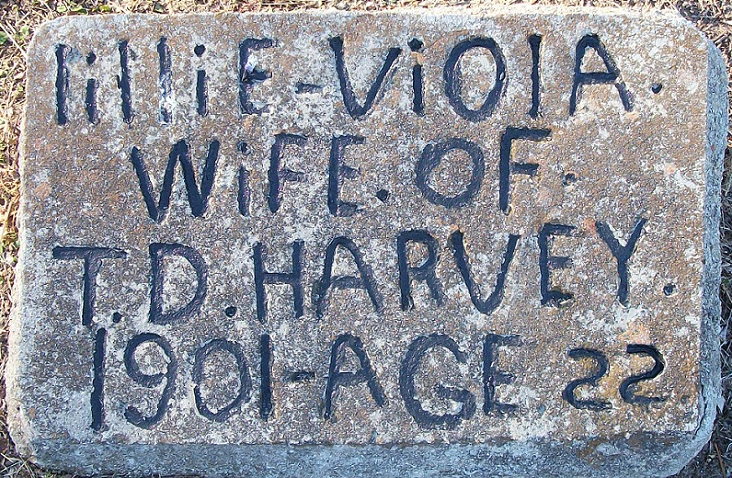 lilliE-ViOlA.
WiFE. OF.
T.D. HARVEY.
1901-AGE 22